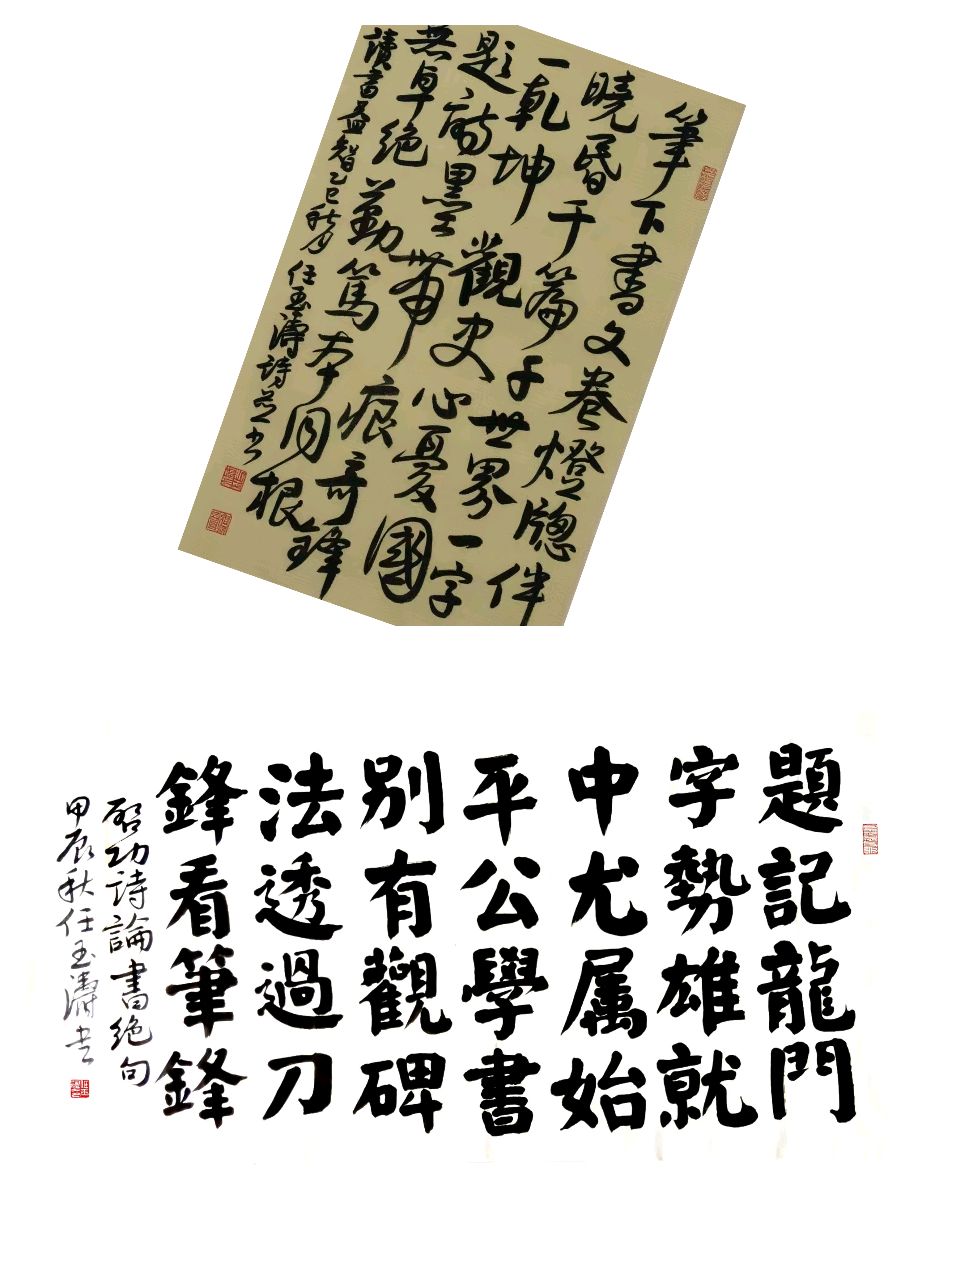 筆下書文卷燈牕伴
曉昏千篇千世界一字
一乾坤觀史心憂國
題詩墨帶痕奇鋒
無卓絕勤篤本同根
讀書益智乙巳秋月任玉濤詩並書
題記龍門
字勢雄就
中尤属始
平公學書
别有觀碑
法透過刀
鋒看筆鋒
啟功詩論書絕句
甲辰秋任玉濤書